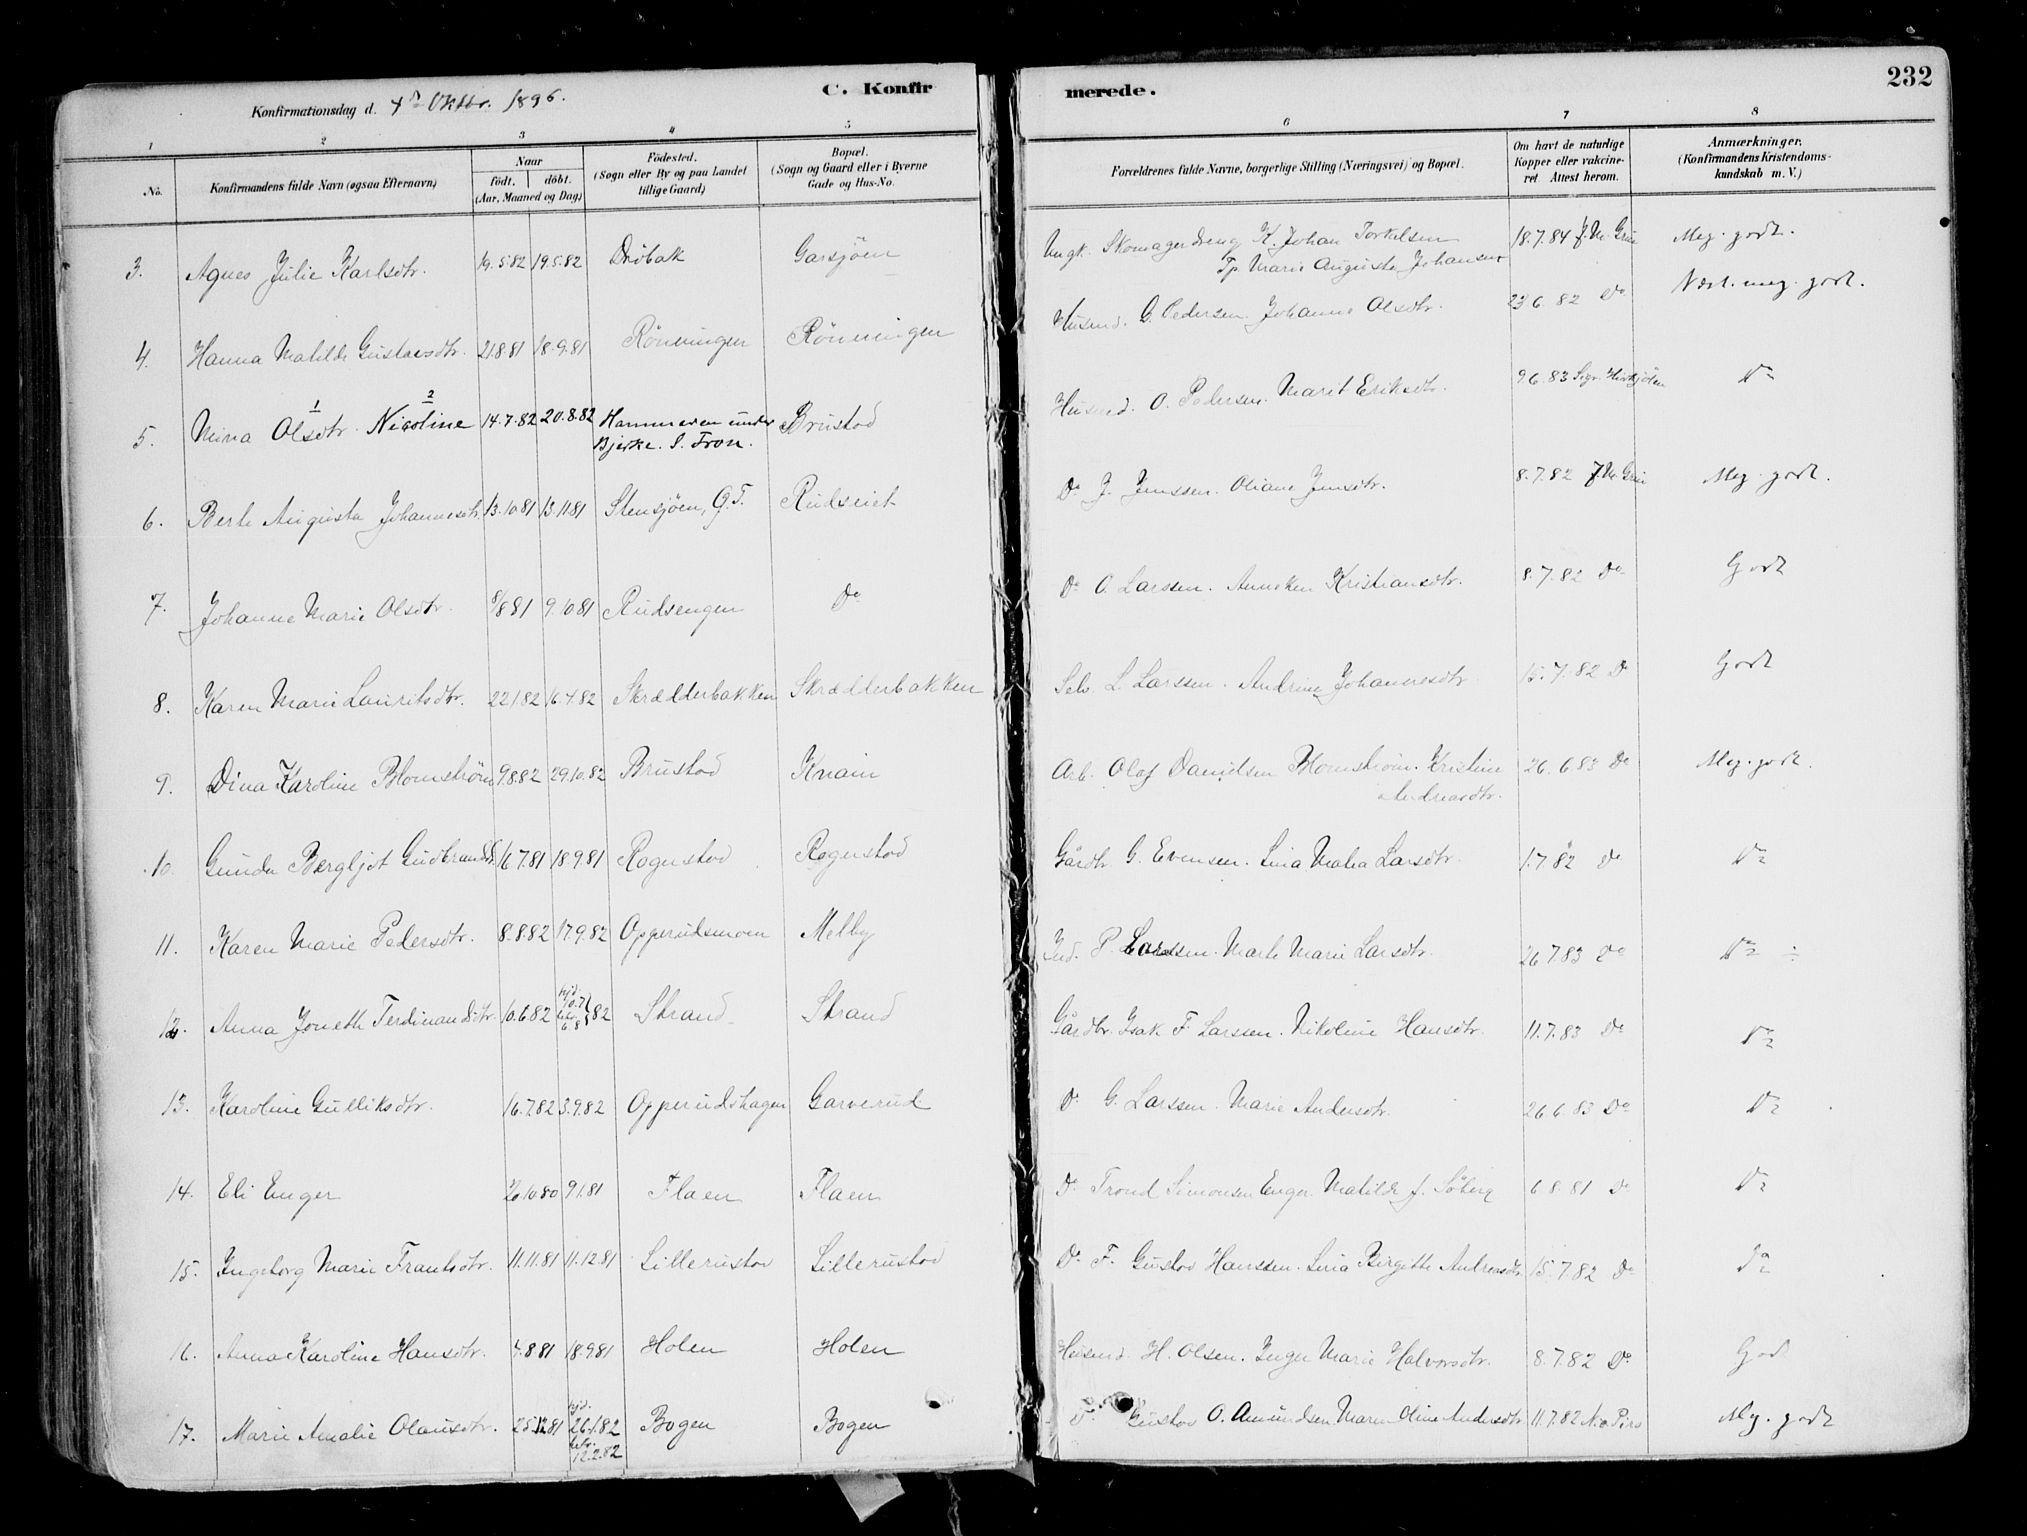 Konfirmationsdag d. 4de Oktbr. 1896.
C. Konfirmerede.
232
1 2 3 4 5 6 7 8
No.
Konfirmandens fulde Navn (ogsaa Efternavn)
Naar
födt. döbt.
(Aar, Maaned og Dag)
Födested.
(Sogn eller By og paa Landet
tillige Gaard)
Bopæl.
(Sogn og Gaard eller i Byerne
Gade og Hus-No.
Forældrenes fulde Navne, borgerlige Stilling (Næringsvei) og Bopæl.
Om havt de naturlige
Kopper eller vakcine-
ret Attest herom.
Anmærkninger.
(Konfirmandens Kristendoms-
kundskab m. V.)
3. Agnes Julie Karlsdtr. 19.5.82 19.5.82 Dröbak Garsjöen Ungk. Skomagerdreng K. Johan Torkelsen 18.7.84 Meg. godt.
Tp. Marie Augusta Johansen
4. Hanna Matilde Gustavsdtr. 21.8.81 18.9.81 Rönningen Rönningen Husmd. G. Pedersen. Johanne Olsdtr. 23.6.82 Do Næst. meg. godt.
5. Mina Olsdtr. Nicoline 14.7.82 20.8.82 Hammeren under Brustad Husmd. O. Pedersen. Marit Eriksdtr. 9.6.83 Do
1 2
Bjerke. S. Fron.
6. Berte Augusta Johannesdtr. 13.10.81 13.11.81 Stensjöen, Ö.T. Rudseiet Do J. Jenssen. Oliane Jensdtr. 8.7.82 Meg. godt.
7. Johanne Marie Olsdtr. 8/8 81 9.10.81 Rudsengen Do Do O. Larssen. Anneken Kristiansdtr. 8.7.82 Do Godt
8. Karen Marie Lauritsdtr. 22.1.82 16.4.82 Skrædderbakken Skrædderbakken Selv. L. Larssen. Andrine Johannesdtr. 15.7.82 Do Godt
9. Dina Karoline Blomström 9.8.82 29.10.82 Brustad Knain Arb. Olaf Danielsen Blomström. Kristine 26.6.83 Do Meg. godt.
Andreasdtr.
10. Gunda Bergljot Gudbrandsd. 16.7.81 18.9.81 Rogerstad Rogerstad Gårdbr. G. Evensen. Lina Malia Larsdtr. 1.7.82 Do Do
11. Karen Marie Pedersdtr. 8.8.82 17.9.82 Opperudsmoen Melby Ind. P. Larssen. Marte Marie Larsdtr. 26.7.83 Do Do ÷
12. Anna Jonette Ferdinandsdtr. 10.6.82 hjd. 10.7 bekr. 6.8 } 82 Strand Strand Gårdbr. Isak F. Larssen. Nikoline Hansdtr. 11.7.83 Do Do
13. Karoline Gulliksdtr. 16.7.82 3.9.82 Opperudshagen Garverud Do G. Larssen. Marie Andersdtr. 26.6.83 Do Do
14. Eli Enger 26.10.80 9.1.81 Flaen Flaen Do Trond Simonsen Enger. Matilde f. Söberg 6.8.81 Do Do
15. Ingeborg Marie Frantsdtr. 11.11.81 11.12.81 Lillerustad Lillerustad Do F. Gustav Hanssen. Lina Birgitte Andreasdtr. 15.7.82 Do Do
16. Anna Karoline Hansdtr. 4.8.81 18.9.81 Holen Holen Husmd. H. Olsen. Inger Marie Halvorsdtr. 8.7.82 Do Godt
17. Marie Amalie Olausdtr. 25.12.81 hjd. 26.1.82 Bogen Bogen Do Gustav O. Amundsen. Maren Oline Andersdtr. 11.7.82 Meg. godt
bekr. 12.2.82